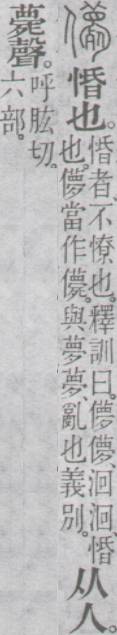 𠐿惛也。
惛者、不憭也。釋訓曰。儚儚、洄洄、惛
也。儚當作𠐿。與夢夢、亂也義別。
从人。
薨聲。
呼肱切。
六部。